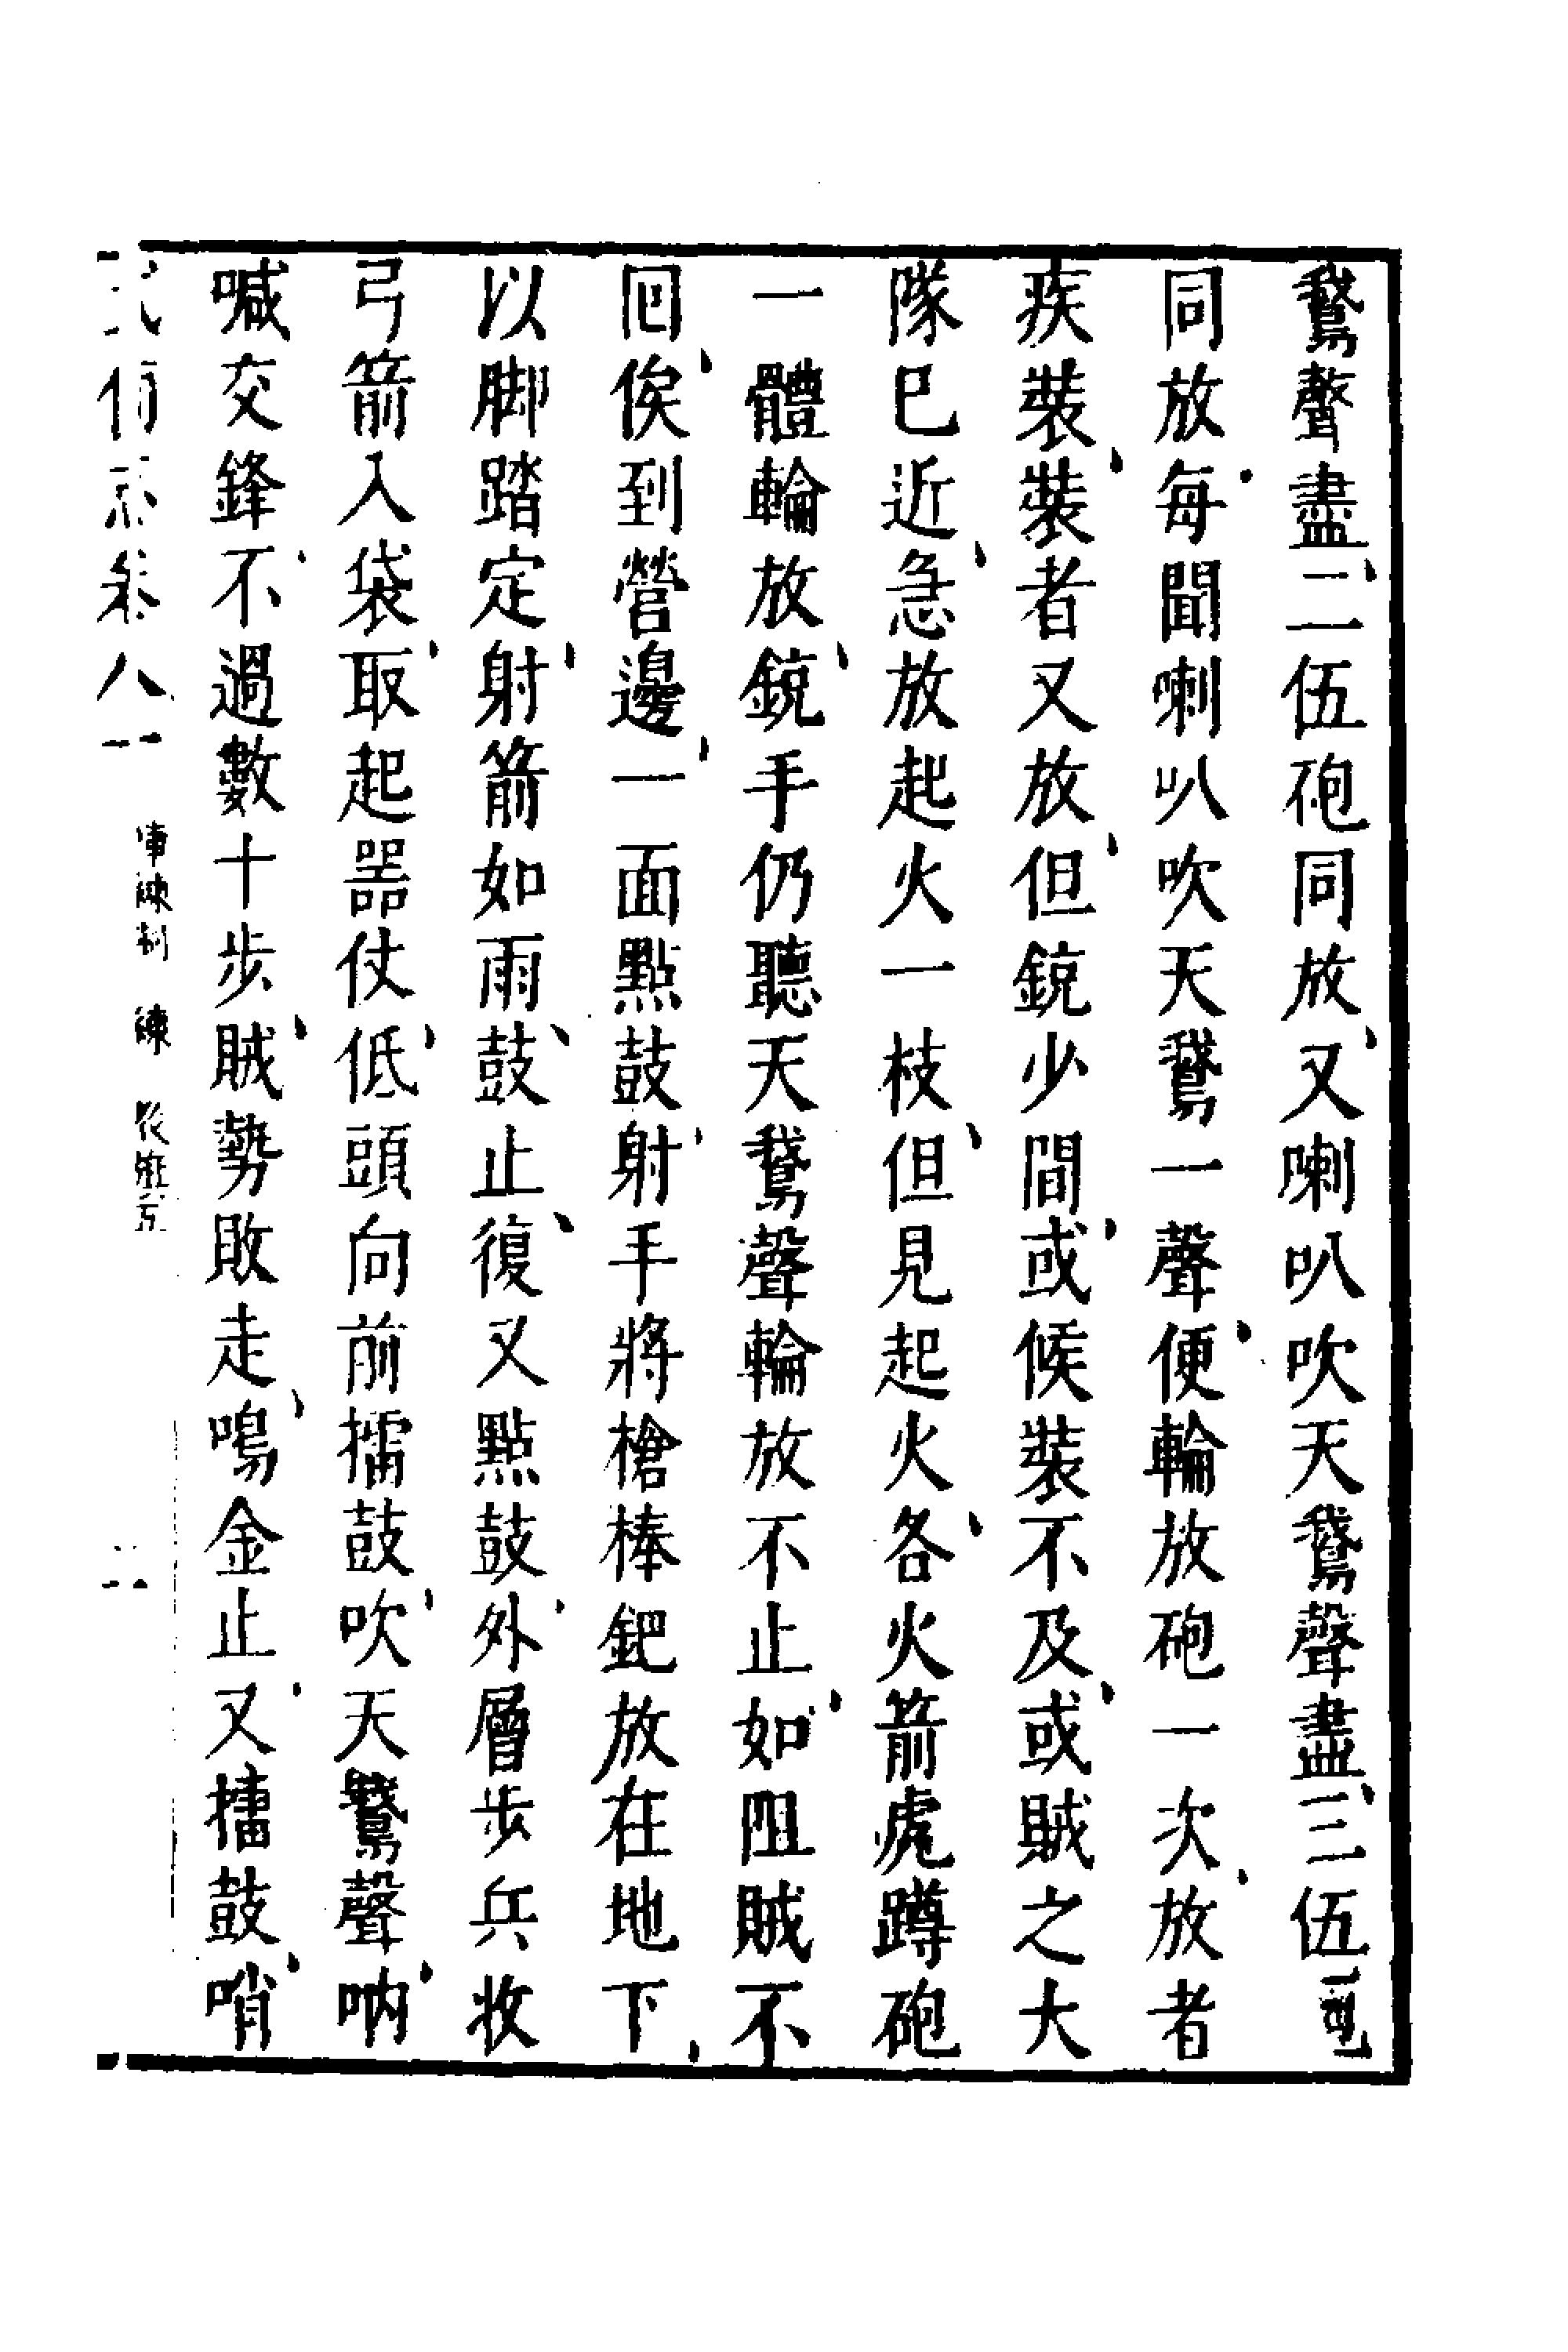 鵞聲盡二伍砲同放又喇叭吹天鵞聲盡三伍砲
同放每聞喇叭吹天鵞一聲便輪放砲一次放者
疾裝裝者又放但銃少間或候裝不及或賊之大
隊已近急放起火一枝但見起火各火箭處蹲砲
一體輪放銃手仍聽天鵞聲輪放不止如阻賊不
囘俟到營邊一面點鼓射手將槍棒鈀放在地下
以脚踏定射箭如雨鼓止復又點鼓外層步兵收
弓箭入袋取起器仗低頭向前擂鼓吹天鵞聲吶
喊交鋒不過數十步賊勢敗走鳴金止又擂鼓哨
武備志卷八一 陣練制 練